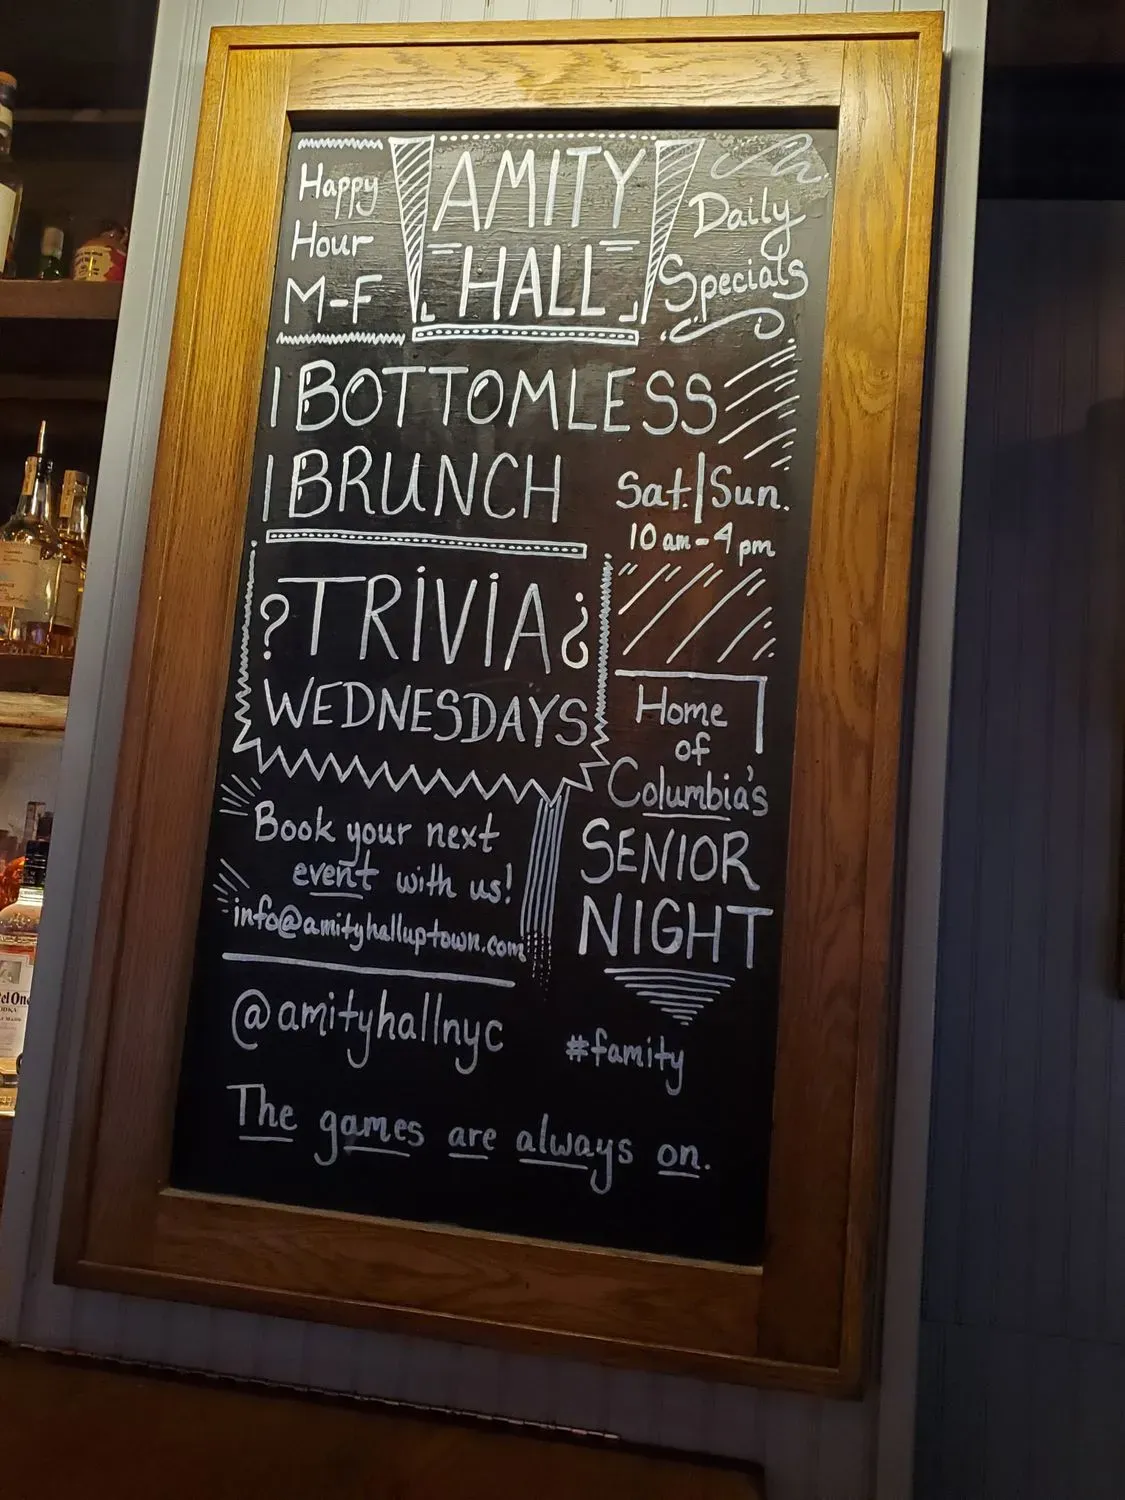 Happy
Hour
M-F
AMITY
HALL
Daily
Specials
BOTTOMLESS
BRUNCH
Sat.|Sun.
10 am - 4 pm
?TRIVIA¿
WEDNESDAYS
Home
of
Columbia's
SENIOR
NIGHT
Book your next
event with us!
info@amityhalluptown.com
@amityhallnyc
#famity
The games are always on.